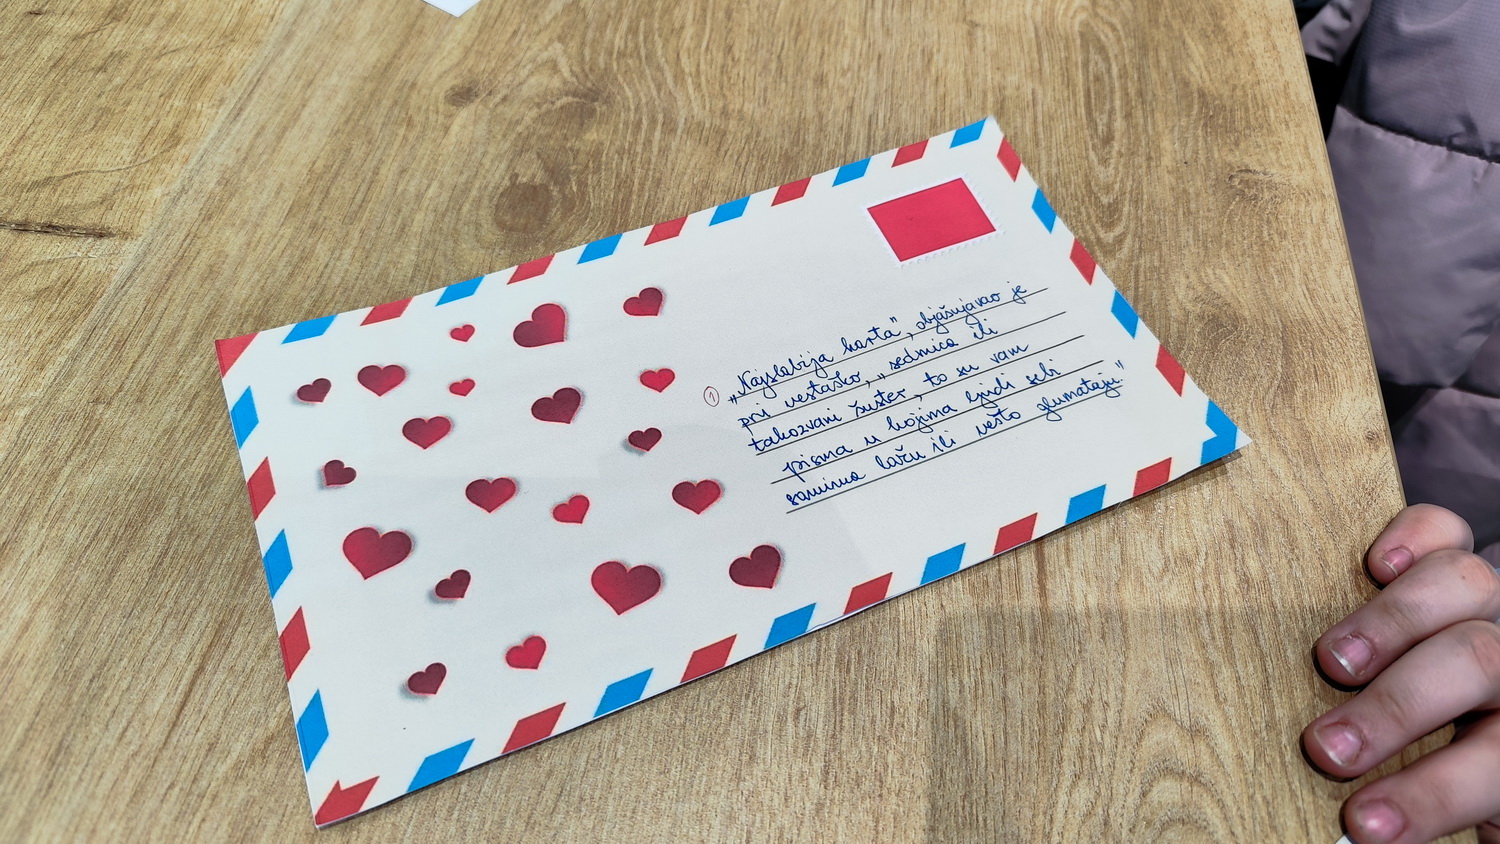 ① „Najslabija karta", objašnjavao je
pri vestaško, „sedmica ili
takozvani šuster, to su vam
pisma u kojima ljudi sebi
samima lažu ili vešto glumataju."